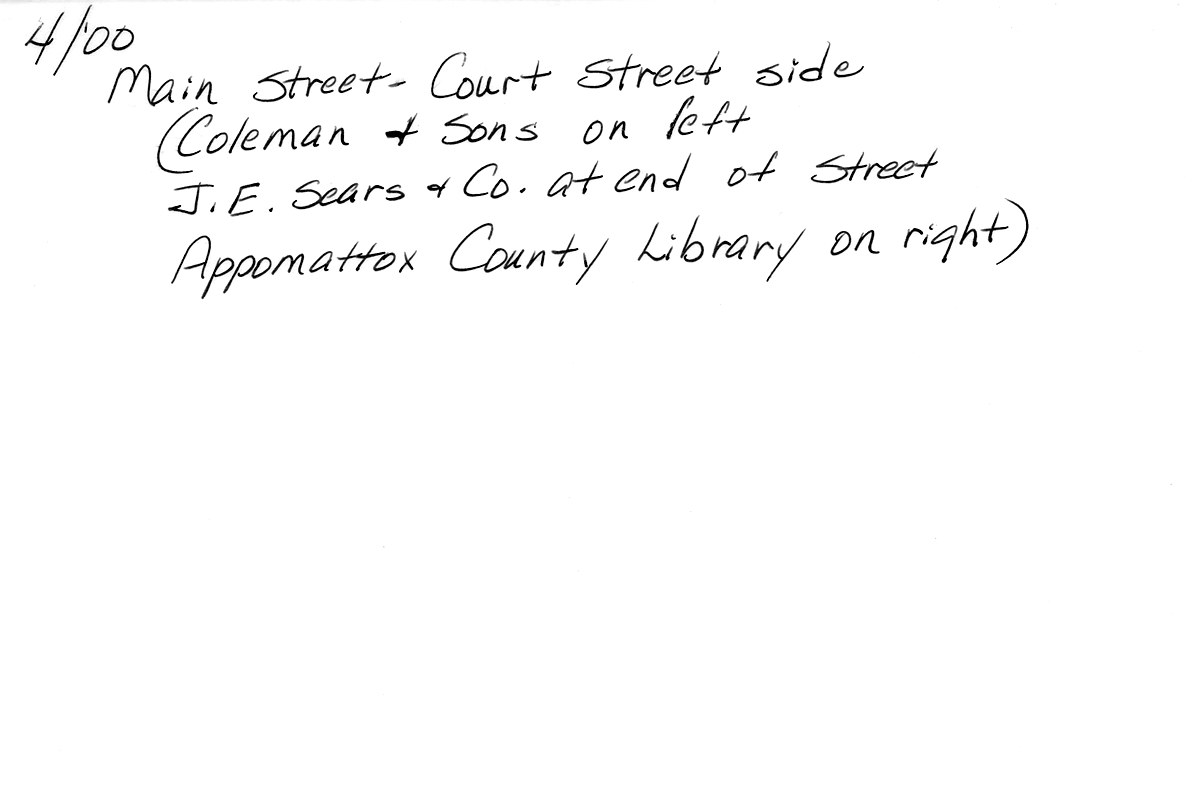 4/00
Main Street - Court Street side
(Coleman & Sons on left
J.E. Sears & Co. at end of Street
Appomattox County Library on right)